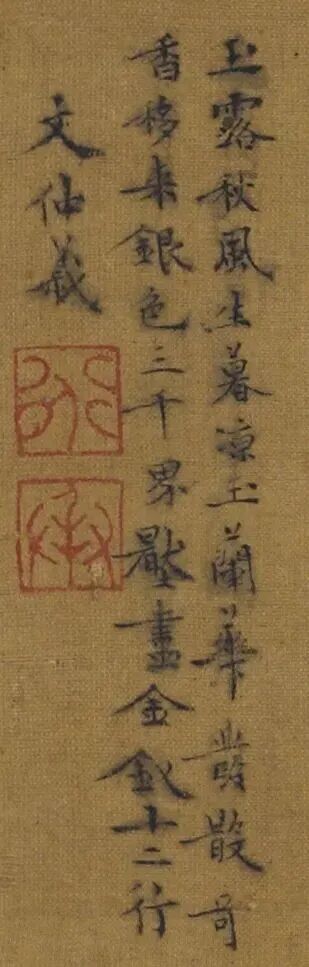 玉露秋風生暮凉玉蘭華發散奇
香移来銀色三千界壓盡金釵十二行
文仲義